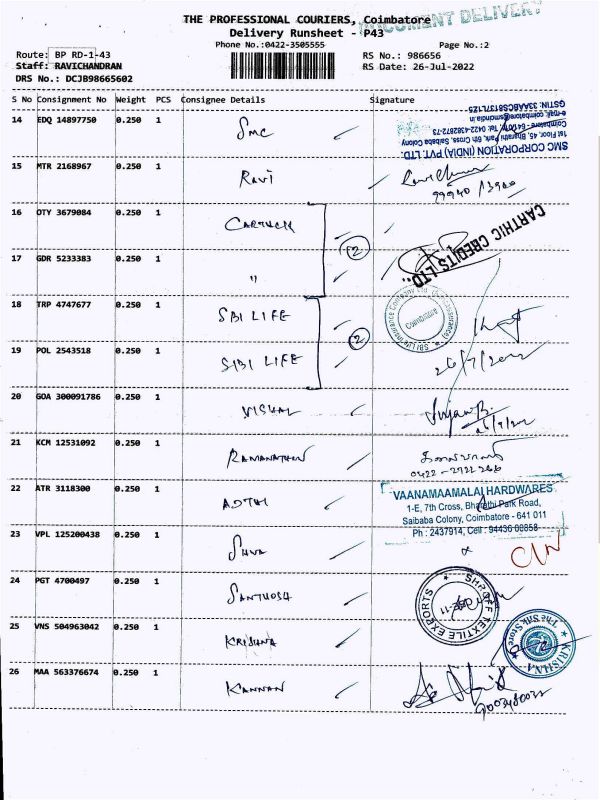 THE PROFESSIONAL COURIERS, Coimbatore
DOCUMENT DELIVERY
Delivery Runsheet - P43
Phone No.:0422-3505555
Page No.:2
Route: BP RD-1-43
RS No.: 986656
Staff: RAVICHANDRAN
RS Date: 26-Jul-2022
DRS No.: DCJB98665602
S No Consignment No Weight PCS Consignee Details Signature
14 EDQ 14897750 0.250 1 SMC
SMC CORPORATION (INDIA) PVT. LTD.
1st Floor, 45, Bharathi Park, 6th Cross, Saibaba Colony
Coimbatore - 641011, Tel: 0422-4382872-73
e-mail: coimbatore@smcindia.in
GSTIN: 33AABCS8137L1Z5
15 MTR 2168967 0.250 1 RAVI
99940 /3900
16 OTY 3679084 0.250 1 CARTHICK
CARTHIC CREDITS LTD.,
17 GDR 5233383 0.250 1 "
(2)
18 TRP 4747677 0.250 1 SBI LIFE
SBI Life Insurance Company Ltd.
Coimbatore
19 POL 2543518 0.250 1 SIBI LIFE
(2)
26/7/2022
20 GOA 300091786 0.250 1 VISHAL
26/7/22
21 KCM 12531092 0.250 1 RAMANATHAN
0422-2722266
22 ATR 3118300 0.250 1 ADTHI
VAANAMAAMALAI HARDWARES
1-E, 7th Cross, Bharathi Park Road,
Saibaba Colony, Coimbatore - 641 011
Ph : 2437914, Cell : 94436 00858
23 VPL 125200438 0.250 1 SHIVA
24 PGT 4700497 0.250 1 SANTHOSH
SHROFF TEXTILE EXPORTS
25 VNS 504963042 0.250 1 KRISHNA
KRISHNA
The Silk Store
26 MAA 563376674 0.250 1 KANNAN